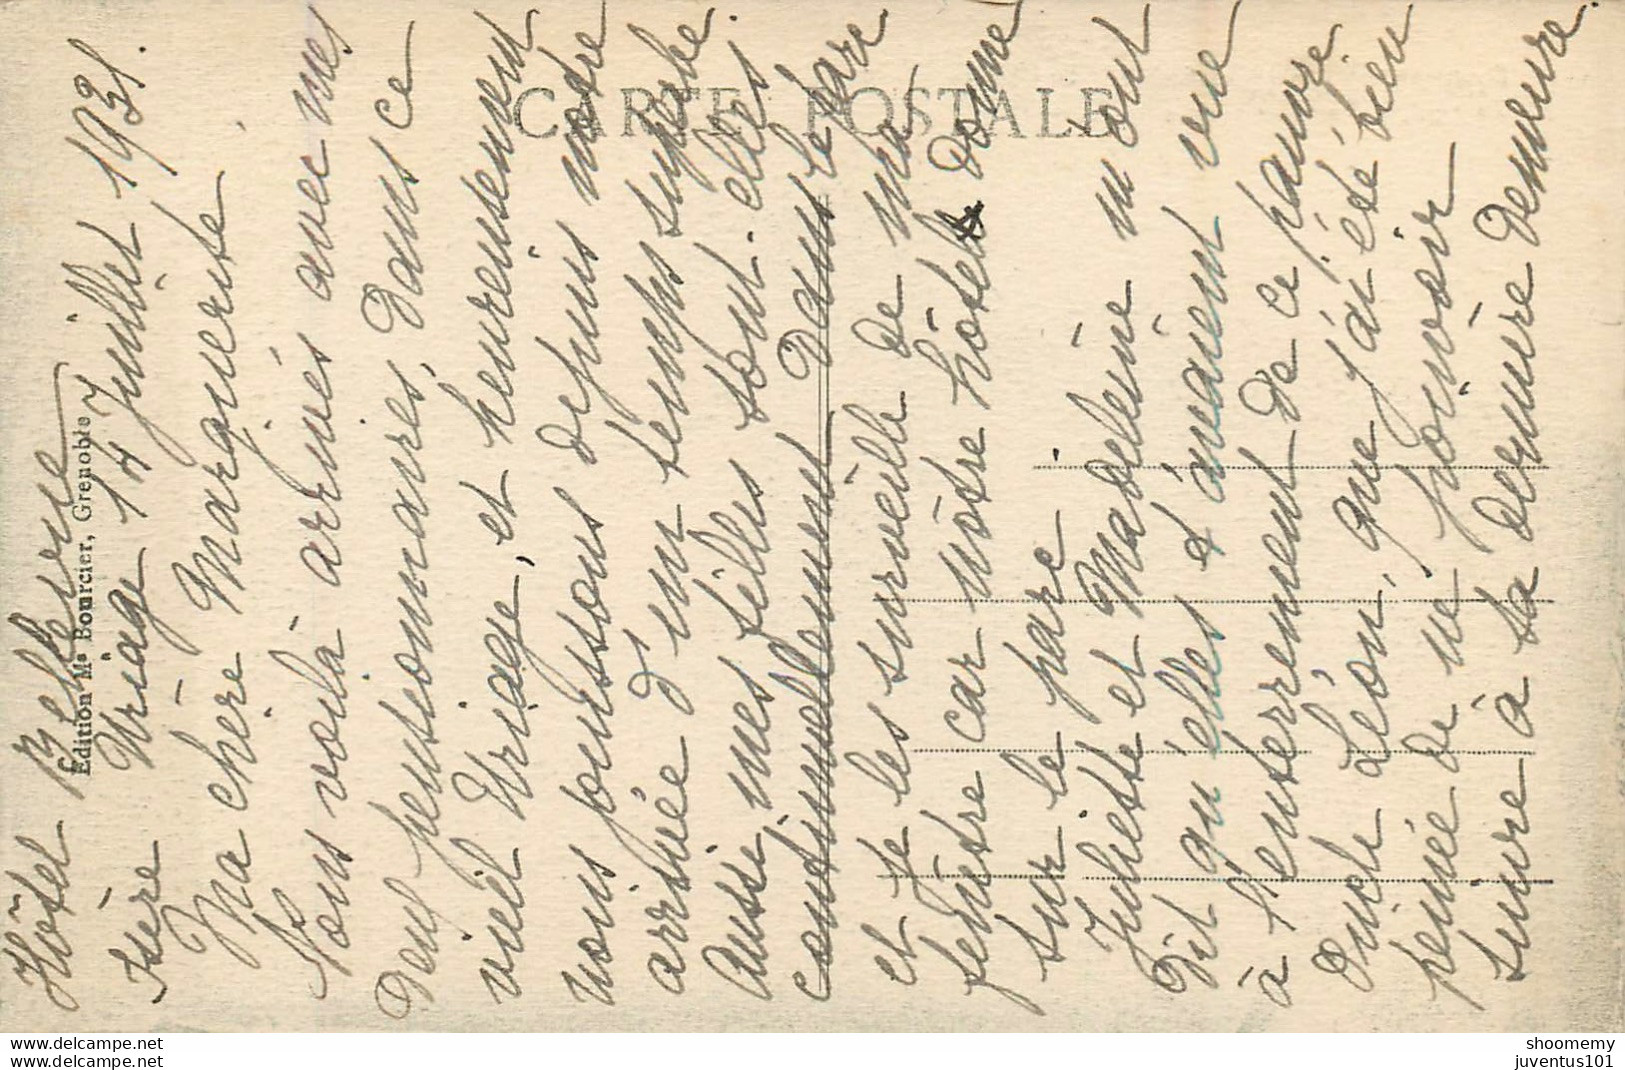 Hôtel Bellevue
Uriage 14 Juillet 1931.
Isère
Ma chère Marguerite
Nous voilà arrivés avec mes
deux pensionnaires, dans ce
vieil Uriage, et heureusement
nous jouissons depuis notre
arrivée d'un temps superbe.
Aussi mes filles sont-elles
continuellement dans le parc
et je les surveille de ma
fenêtre car nôtre hôtel donne
sur le parc.
Juliette et Madeleine m'ont
dit qu'elles t'avaient vue
à l'enterrement de ce pauvre
Oncle Léon, que j'ai été bien
peinée de ne pouvoir
suivre à sa dernière demeure.
CARTE POSTALE
Edition Me Bourcier, Grenoble
www.delcampe.net
www.delcampe.net
shoomemy
juventus101